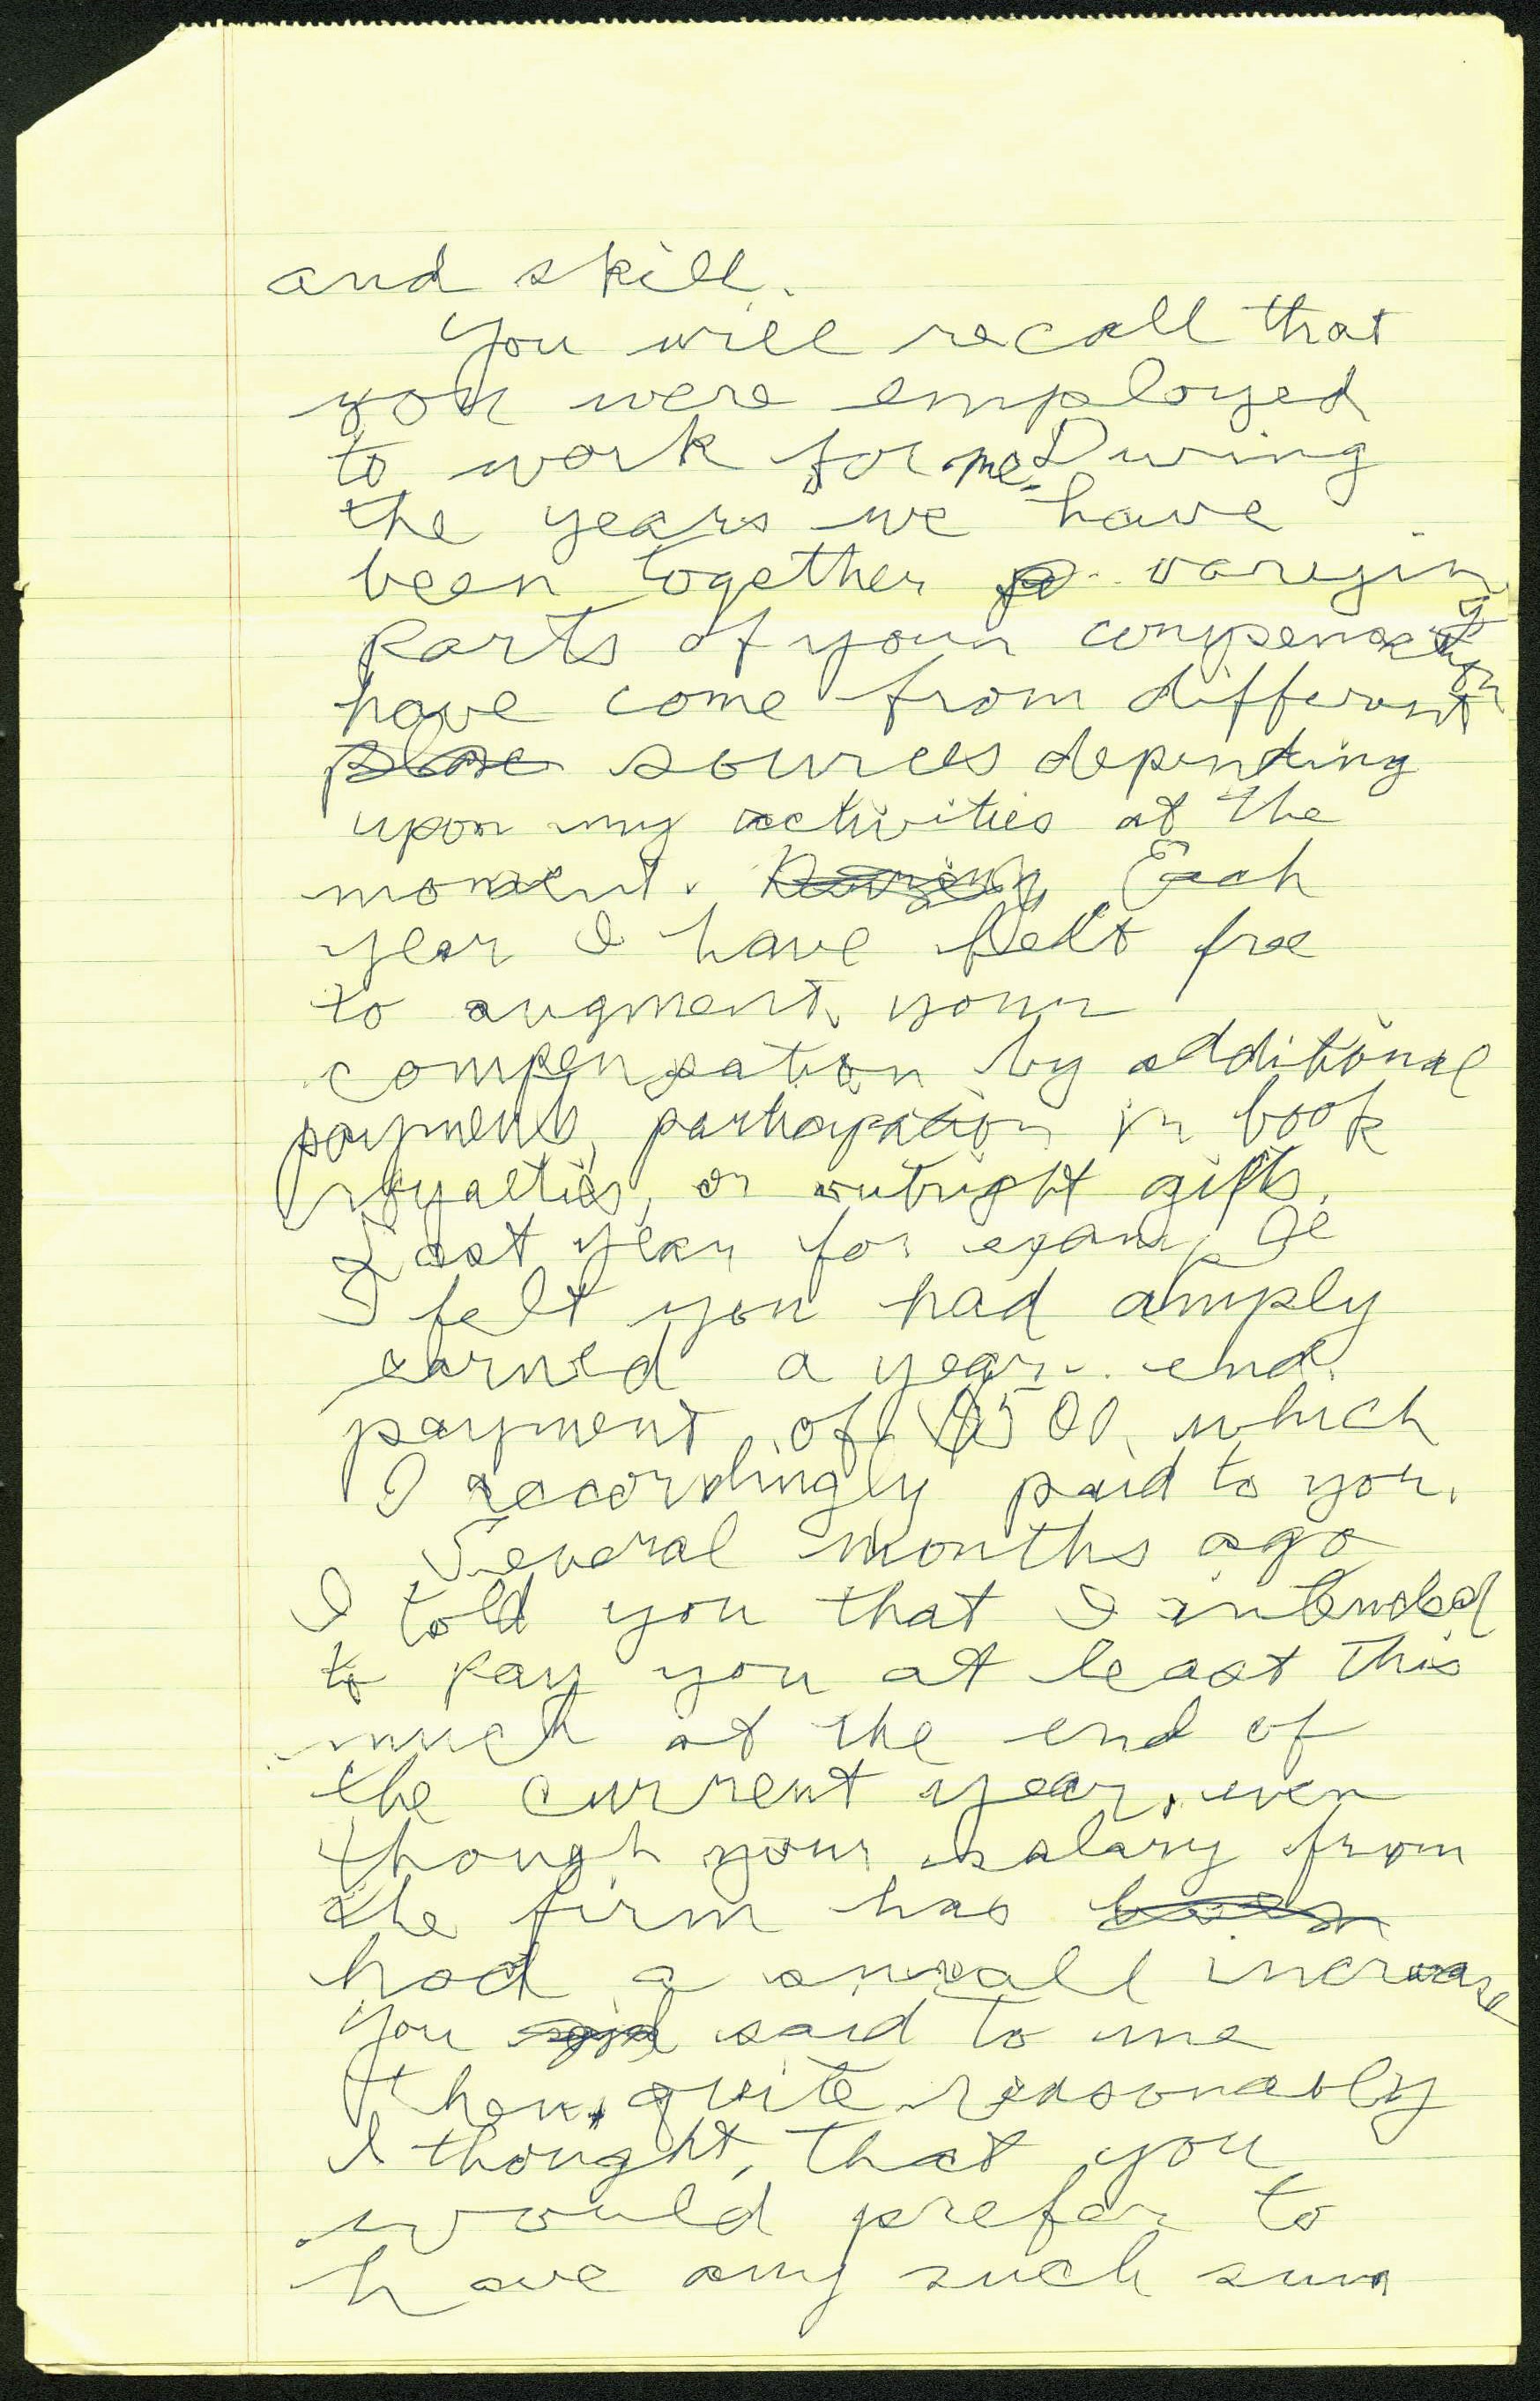 and skill.
You will recall that
you were employed
to work for me. During
the years we have
been together varying
parts of your compensation
have come from different
~~place~~ sources depending
upon my activities at the
moment. ~~During~~ Each
year I have felt free
to augment your
compensation by additional
payments, participation in book
royalties, or outright gifts.
Last year for example
I felt you had amply
earned a year-end
payment of $500, which
I accordingly paid to you.
Several months ago
I told you that I intended
to pay you at least this
much at the end of
the current year, even
though your salary from
the firm has ~~been~~
had a small increase
You ~~said~~ said to me
then, quite reasonably
I thought, that you
would prefer to
have any such sum